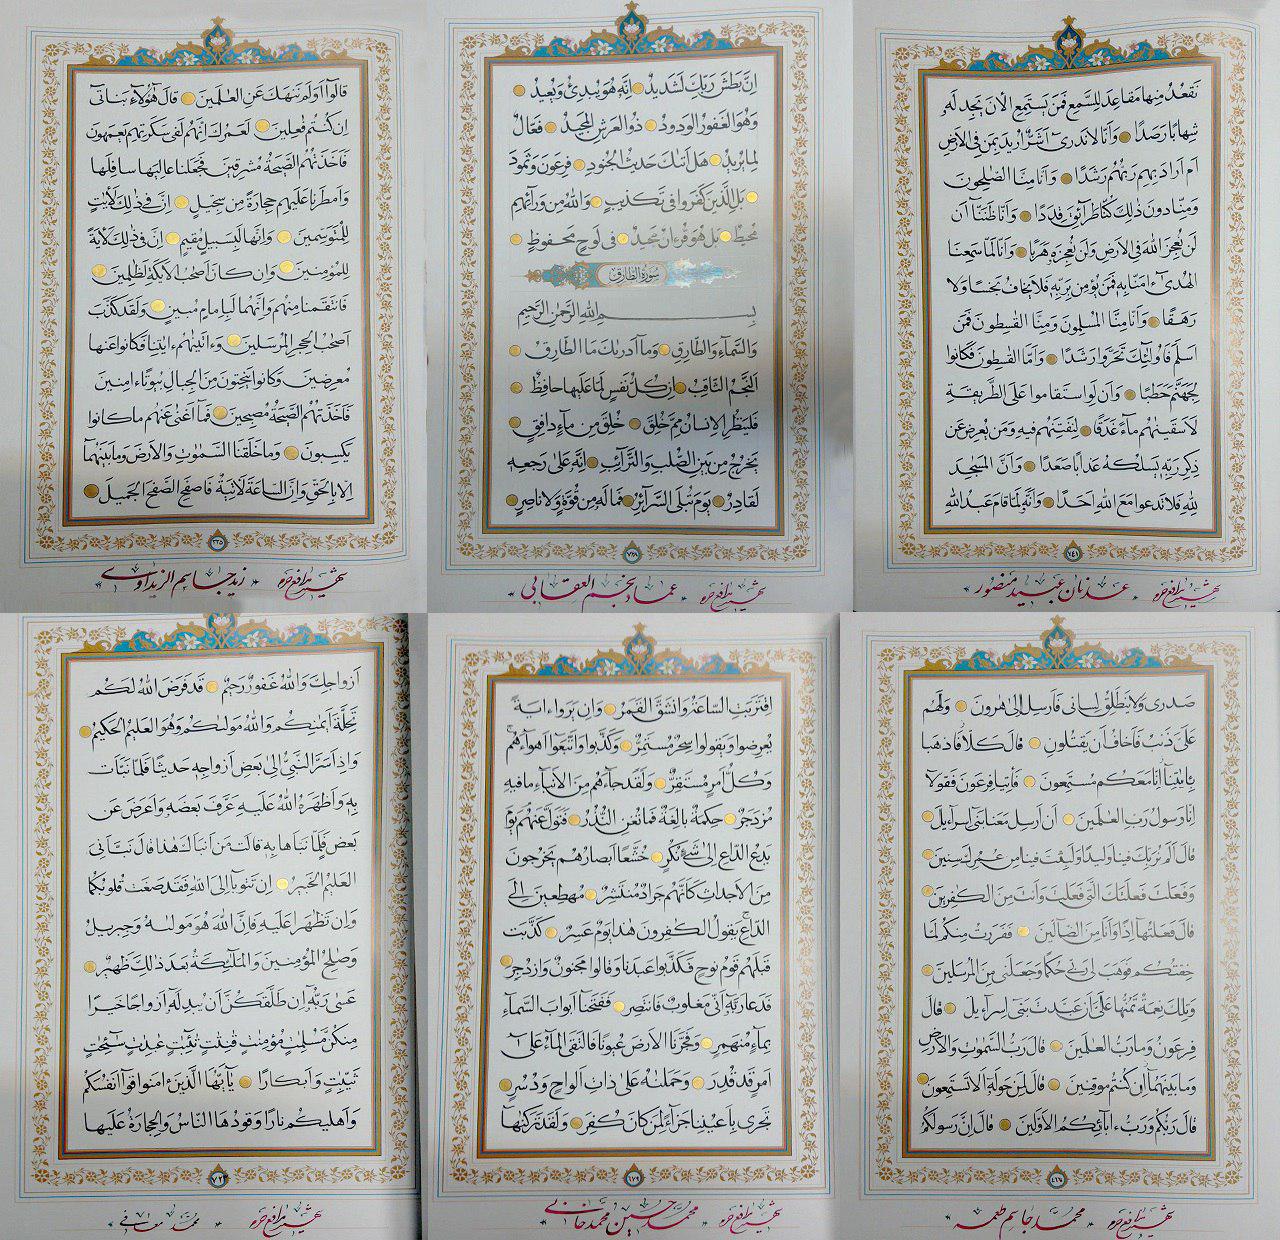 نَقعُدُ مِنها مَقاعِدَ لِلسَّمعِ فَمَن يَستَمِعِ الآنَ يَجِد لَهُ
شِهابًا رَصَدًا وَأَنّا لا نَدري أَشَرٌّ أُريدَ بِمَن فِي الأَرضِ
أَم أَرادَ بِهِم رَبُّهُم رَشَدًا وَأَنّا مِنَّا الصّٰلِحونَ
وَمِنّا دونَ ذٰلِكَ كُنّا طَرائِقَ قِدَدًا وَأَنّا ظَنَنّا أَن
لَن نُعجِزَ اللهَ فِي الأَرضِ وَلَن نُعجِزَهُ هَرَبًا وَأَنّا لَمّا سَمِعنَا
الهُدىٰ ءامَنّا بِهِ فَمَن يُؤمِن بِرَبِّهِ فَلا يَخافُ بَخسًا وَلا
رَهَقًا وَأَنّا مِنَّا المُسلِمونَ وَمِنَّا القٰسِطونَ فَمَن
أَسلَمَ فَأُولٰئِكَ تَحَرَّوا رَشَدًا وَأَمَّا القٰسِطونَ فَكانوا
لِجَهَنَّمَ حَطَبًا وَأَن لَوِ استَقاموا عَلَى الطَّريقَةِ
لَأَسقَينٰهُم ماءً غَدَقًا لِنَفتِنَهُم فيهِ وَمَن يُعرِض عَن
ذِكرِ رَبِّهِ يَسلُكهُ عَذابًا صَعَدًا وَأَنَّ المَسٰجِدَ
لِلهِ فَلا تَدعوا مَعَ اللهِ أَحَدًا وَأَنَّهُ لَمّا قامَ عَبدُ اللهِ
۷۴۱
شهید مدافع حرم * عدنان عبید منصور *
إِنَّ بَطشَ رَبِّكَ لَشَديدٌ إِنَّهُ هُوَ يُبدِئُ وَيُعيدُ
وَهُوَ الغَفورُ الوَدودُ ذُو العَرشِ المَجيدُ فَعّالٌ
لِما يُريدُ هَل أَتىٰكَ حَديثُ الجُنودِ فِرعَونَ وَثَمودَ
بَلِ الَّذينَ كَفَروا في تَكذيبٍ وَاللهُ مِن وَرائِهِم
مُحيطٌ بَل هُوَ قُرءانٌ مَجيدٌ في لَوحٍ مَحفوظٍ
سُورَةُ الطّارِق
بِسمِ اللهِ الرَّحمٰنِ الرَّحيمِ
وَالسَّماءِ وَالطّارِقِ وَما أَدرىٰكَ مَا الطّارِقُ
النَّجمُ الثّاقِبُ إِن كُلُّ نَفسٍ لَمّا عَلَيها حافِظٌ
فَليَنظُرِ الإِنسانُ مِمَّ خُلِقَ خُلِقَ مِن ماءٍ دافِقٍ
يَخرُجُ مِن بَينِ الصُّلبِ وَالتَّرائِبِ إِنَّهُ عَلىٰ رَجعِهِ
لَقادِرٌ يَومَ تُبلَى السَّرائِرُ فَما لَهُ مِن قُوَّةٍ وَلا ناصِرٍ
شهید مدافع حرم * عماد نجم العقابی *
قالوا أَوَلَم نَنهَكَ عَنِ العٰلَمينَ قالَ هٰؤُلاءِ بَناتي
إِن كُنتُم فٰعِلينَ لَعَمرُكَ إِنَّهُم لَفي سَكرَتِهِم يَعمَهونَ
فَأَخَذَتهُمُ الصَّيحَةُ مُشرِقينَ فَجَعَلنا عالِيَها سافِلَها
وَأَمطَرنا عَلَيهِم حِجارَةً مِن سِجّيلٍ إِنَّ في ذٰلِكَ لَآيٰتٍ
لِلمُتَوَسِّمينَ وَإِنَّها لَبِسَبيلٍ مُقيمٍ إِنَّ في ذٰلِكَ لَآيَةً
لِلمُؤمِنينَ وَإِن كانَ أَصحٰبُ الأَيكَةِ لَظٰلِمينَ
فَانتَقَمنا مِنهُم وَإِنَّهُما لَبِإِمامٍ مُبينٍ وَلَقَد كَذَّبَ
أَصحٰبُ الحِجرِ المُرسَلينَ وَءاتَينٰهُم ءايٰتِنا فَكانوا عَنها
مُعرِضينَ وَكانوا يَنحِتونَ مِنَ الجِبالِ بُيوتًا ءامِنينَ
فَأَخَذَتهُمُ الصَّيحَةُ مُصبِحينَ فَما أَغنىٰ عَنهُم ما كانوا
يَكسِبونَ وَما خَلَقنَا السَّمٰوٰتِ وَالأَرضَ وَما بَينَهُما
إِلّا بِالحَقِّ وَإِنَّ السّاعَةَ لَآتِيَةٌ فَاصفَحِ الصَّفحَ الجَميلَ
۳۳۵
شهید مدافع حرم * زید جاسم الزیداوی *
صَدري وَلا يَنطَلِقُ لِساني فَأَرسِل إِلىٰ هٰرونَ وَلَهُم
عَلَيَّ ذَنبٌ فَأَخافُ أَن يَقتُلونِ قالَ كَلّا فَاذهَبا
بِآيٰتِنا إِنّا مَعَكُم مُستَمِعونَ فَأتِيا فِرعَونَ فَقولا
إِنّا رَسولُ رَبِّ العٰلَمينَ أَن أَرسِل مَعَنا بَني إِسراءيلَ
قالَ أَلَم نُرَبِّكَ فينا وَليدًا وَلَبِثتَ فينا مِن عُمُرِكَ سِنينَ
وَفَعَلتَ فَعلَتَكَ الَّتي فَعَلتَ وَأَنتَ مِنَ الكٰفِرينَ
قالَ فَعَلتُها إِذًا وَأَنا مِنَ الضّالّينَ فَفَرَرتُ مِنكُم لَمّا
خِفتُكُم فَوَهَبَ لي رَبّي حُكمًا وَجَعَلَني مِنَ المُرسَلينَ
وَتِلكَ نِعمَةٌ تَمُنُّها عَلَيَّ أَن عَبَّدتَ بَني إِسراءيلَ قالَ
فِرعَونُ وَما رَبُّ العٰلَمينَ قالَ رَبُّ السَّمٰوٰتِ وَالأَرضِ
وَما بَينَهُما إِن كُنتُم موقِنينَ قالَ لِمَن حَولَهُ أَلا تَستَمِعونَ
قالَ رَبُّكُم وَرَبُّ ءابائِكُمُ الأَوَّلينَ قالَ إِنَّ رَسولَكُمُ
شهید مدافع حرم * محمد جاسم طعمه *
اقتَرَبَتِ السّاعَةُ وَانشَقَّ القَمَرُ وَإِن يَرَوا ءايَةً
يُعرِضوا وَيَقولوا سِحرٌ مُستَمِرٌّ وَكَذَّبوا وَاتَّبَعوا أَهواءَهُم
وَكُلُّ أَمرٍ مُستَقِرٌّ وَلَقَد جاءَهُم مِنَ الأَنباءِ ما فيهِ
مُزدَجَرٌ حِكمَةٌ بالِغَةٌ فَما تُغنِ النُّذُرُ فَتَوَلَّ عَنهُم يَومَ
يَدعُ الدّاعِ إِلىٰ شَيءٍ نُكُرٍ خُشَّعًا أَبصارُهُم يَخرُجونَ
مِنَ الأَجداثِ كَأَنَّهُم جَرادٌ مُنتَشِرٌ مُهطِعينَ إِلَى
الدّاعِ يَقولُ الكٰفِرونَ هٰذا يَومٌ عَسِرٌ كَذَّبَت
قَبلَهُم قَومُ نوحٍ فَكَذَّبوا عَبدَنا وَقالوا مَجنونٌ وَازدُجِرَ
فَدَعا رَبَّهُ أَنّي مَغلوبٌ فَانتَصِر فَفَتَحنا أَبوابَ السَّماءِ
بِماءٍ مُنهَمِرٍ وَفَجَّرنَا الأَرضَ عُيونًا فَالتَقَى الماءُ عَلىٰ
أَمرٍ قَد قُدِرَ وَحَمَلنٰهُ عَلىٰ ذاتِ أَلواحٍ وَدُسُرٍ
تَجري بِأَعيُنِنا جَزاءً لِمَن كانَ كُفِرَ وَلَقَد تَرَكنٰها
۶۷۹
شهید مدافع حرم * محمد حسین محمدخانی *
أَزواجِكَ وَاللهُ غَفورٌ رَحيمٌ قَد فَرَضَ اللهُ لَكُم
تَحِلَّةَ أَيمٰنِكُم وَاللهُ مَولىٰكُم وَهُوَ العَليمُ الحَكيمُ
وَإِذ أَسَرَّ النَّبِيُّ إِلىٰ بَعضِ أَزواجِهِ حَديثًا فَلَمّا نَبَّأَت
بِهِ وَأَظهَرَهُ اللهُ عَلَيهِ عَرَّفَ بَعضَهُ وَأَعرَضَ عَن
بَعضٍ فَلَمّا نَبَّأَها بِهِ قالَت مَن أَنبَأَكَ هٰذا قالَ نَبَّأَنِيَ
العَليمُ الخَبيرُ إِن تَتوبا إِلَى اللهِ فَقَد صَغَت قُلوبُكُما
وَإِن تَظٰهَرا عَلَيهِ فَإِنَّ اللهَ هُوَ مَولىٰهُ وَجِبريلُ
وَصٰلِحُ المُؤمِنينَ وَالمَلٰئِكَةُ بَعدَ ذٰلِكَ ظَهيرٌ
عَسىٰ رَبُّهُ إِن طَلَّقَكُنَّ أَن يُبدِلَهُ أَزواجًا خَيرًا
مِنكُنَّ مُسلِمٰتٍ مُؤمِنٰتٍ قٰنِتٰتٍ تٰئِبٰتٍ عٰبِدٰتٍ سٰئِحٰتٍ
ثَيِّبٰتٍ وَأَبكارًا يٰأَيُّهَا الَّذينَ ءامَنوا قوا أَنفُسَكُم
وَأَهليكُم نارًا وَقودُهَا النّاسُ وَالحِجارَةُ عَلَيها
۷۲۳
شهید مدافع حرم * محمد معافی *